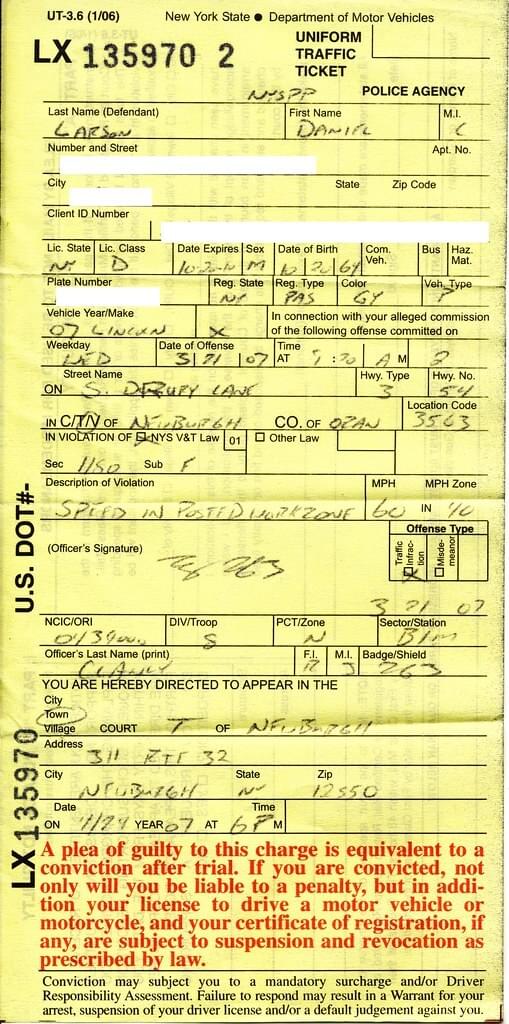 UT-3.6 (1/06) New York State ● Department of Motor Vehicles
LX 135970 2 UNIFORM
TRAFFIC
TICKET
NYSPP POLICE AGENCY
Last Name (Defendant) First Name M.I.
LARSON DANIEL C
Number and Street Apt. No.
City State Zip Code
Client ID Number
Lic. State Lic. Class Date Expires Sex Date of Birth Com. Veh. Bus Haz. Mat.
NY D 10-20-10 M 10 20 64
Plate Number Reg. State Reg. Type Color Veh. Type
NY PAS GY P
Vehicle Year/Make In connection with your alleged commission
07 LINCOLN X of the following offense committed on
Weekday Date of Offense Time
WED 3 21 07 AT A M 2
Street Name Hwy. Type Hwy. No.
ON S. LANE 3 54
Location Code
IN C/T/V OF NEWBURGH CO. OF ORAN 3563
IN VIOLATION OF NYS V&T Law 01 Other Law
Sec 1180 Sub F
Description of Violation MPH MPH Zone
SPEED IN POSTED WORKZONE 60 IN 40
Offense Type
(Officer's Signature) Traffic Infraction Misdemeanor
263
3 21 07
NCIC/ORI DIV/Troop PCT/Zone Sector/Station
S N
Officer's Last Name (print) F.I. M.I. Badge/Shield
CLANCY R J 263
YOU ARE HEREBY DIRECTED TO APPEAR IN THE
City
Town
Village COURT T OF NEWBURGH
Address
311 RTE 32
City State Zip
NEWBURGH NY 12550
Date Time
ON 4/24 YEAR 07 AT 6 P M
A plea of guilty to this charge is equivalent to a
conviction after trial. If you are convicted, not
only will you be liable to a penalty, but in addi-
tion your license to drive a motor vehicle or
motorcycle, and your certificate of registration, if
any, are subject to suspension and revocation as
prescribed by law.
Conviction may subject you to a mandatory surcharge and/or Driver
Responsibility Assessment. Failure to respond may result in a Warrant for your
arrest, suspension of your driver license and/or a default judgement against you.
U.S. DOT#-
LX 135970